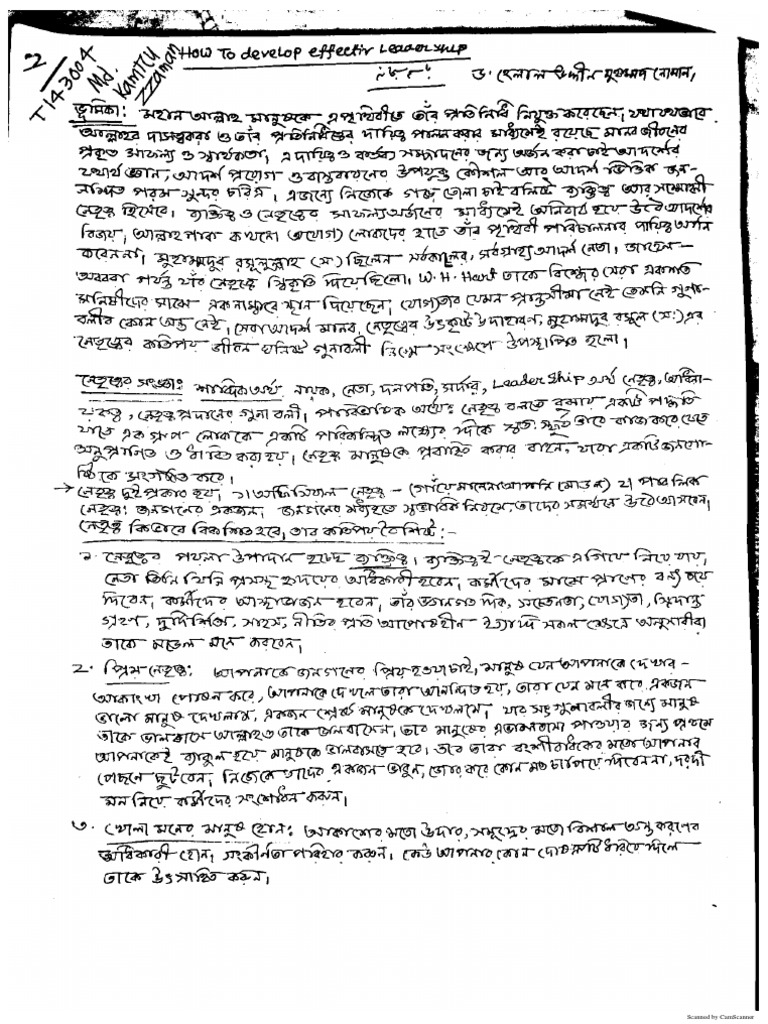 2
T14-3004
Md.
KamrUz
Zzaman
How To develop effectiv Leadership
ড. হেলাল উদ্দীন মুহাম্মদ নোমান,
ভূমিকা: মহান আল্লাহ মানুষকে এ পৃথিবীতে তাঁর প্রতিনিধি নিযুক্ত করেছেন, যথাযথভাবে
আল্লাহর দাসত্ব করা ও তাঁর প্রতিনিধিত্বের দায়িত্ব পালন করার মাধ্যমেই রয়েছে মানব জীবনের
প্রকৃত সাফল্য ও স্বার্থকতা, এ দায়িত্ব ও কর্তব্য সম্পাদনের জন্য অর্জন করা চাই আদর্শের
যথার্থ জ্ঞান, আদর্শ প্রয়োগ ও বাস্তবায়নের উপযুক্ত কৌশল আর আদর্শ ভিত্তিক জন-
নন্দিত পরম সুন্দর চরিত্র। এজন্যে নিজেকে গড়ে তোলা চাই বলিষ্ঠ ব্যক্তিত্ব আর সম্মোহনী
নেতৃত্ব হিসেবে। ব্যক্তিত্ব ও নেতৃত্বের সাফল্য অর্জনের মাধ্যমেই অনিবার্য হয়ে উঠে আদর্শের
বিজয়, আল্লাহ পাক কখনো অযোগ্য লোকদের হাতে তাঁর পৃথিবী পরিচালনার দায়িত্ব অর্পন
করেন না। মুহাম্মদুর রসূলুল্লাহ (স:) ছিলেন সর্বকালের, সর্বগ্রাহ্য আদর্শ নেতা,
পর্যন্ত যাঁর নেতৃত্বের স্বিকৃতি দিয়েছিলো। W.H. Hart তাকে বিশ্বের সেরা একশত
মনিষীদের মাঝে এক নাম্বারে স্থান দিয়েছেন, যোগ্যতার যেমন প্রান্তসীমা নেই তেমনি গুণা-
বলীর কোন অন্ত নেই, সেরা আদর্শ মানব, নেতৃত্বের উৎকৃষ্ট উদাহারণ, মুহাম্মদুর রসূল (স:) এর
নেতৃত্বের কতিপয় জীবন ঘনিষ্ট গুনাবলী নিম্নে সংক্ষেপে উপস্থাপিত হলো।
নেতৃত্বের সংজ্ঞা: শাব্দিক অর্থ নায়ক, নেতা, দলপতি, সর্দার, Leader Ship অর্থ নেতৃত্ব, অধিনা-
য়কত্ব, নেতৃত্ব প্রদানের গুনাবলী। পারিভাষিক অর্থে: নেতৃত্ব বলতে বুঝায় একটি পদ্ধতি
যাতে এক গ্রুপ লোককে একটি পরিকল্পিত লক্ষ্যের দিকে স্বতঃস্ফূর্ত ভাবে কাজ করে যেতে
অনুপ্রাণিত ও ধাবিত করা হয়। নেতৃত্ব মানুষকে প্রভাবিত করার বাহন, যারা একটি জনগো-
ষ্ঠিকে সংগঠিত করে।
→ নেতৃত্ব দুই প্রকার হয়, ১। অফিসিয়াল নেতৃত্ব – (গাঁয়ে মানেনা আপনি মোড়ল) ২। পাবলিক
নেতৃত্ব: জনগনের একজন। জনগনের মধ্য হতে স্বাভাবিক নিয়মে, তাদের সমর্থনে উঠে আসবেন,
নেতৃত্ব কিভাবে বিকশিত হবে, তার কতিপয় বৈশিষ্ট্য:-
১. নেতৃত্বের পয়লা উপাদান হচ্ছে ব্যক্তিত্ব। ব্যক্তিত্বই নেতৃত্বকে এগিয়ে নিয়ে যায়,
নেতা তিনি যিনি প্রশস্ত হৃদয়ের অধিকারী হবেন। কর্মীদের মাঝে প্রাণের বন্যা বয়ে
দিবেন, কর্মীদের আস্থাভাজন হবেন, তাঁর জ্ঞানগত দিক, সচেতনতা, যোগ্যতা, সিদ্ধান্ত
গ্রহণ, দুরদর্শিতা, সাহস, নীতির প্রতি আপোষহীন ইত্যাদি সকল ক্ষেত্রে অনুসারীরা
তাকে মডেল মনে করবেন,
২. প্রিয় নেতৃত্ব: আপনাকে জনগনের প্রিয় হওয়া চাই, মানুষ যেন আপনাকে দেখার-
আকাংখা পোষন করে, আপনাকে দেখলে তারা আনন্দিত হয়, তারা যেন মনে করে একজন
ভালো মানুষ দেখলাম, একজন শ্রেষ্ঠ মানুষকে দেখলাম; যার সৎ গুনাবলীর জন্যে মানুষ
তাকে ভালবাসে আল্লাহও তাকে ভালবাসেন, তবে মানুষের এ ভালবাসা পাওয়ার জন্য প্রথমে
আপনাকেই ব্যাকুল হয়ে মানুষকে ভালবাসতে হবে। তবে তারা বংশীবাদকের মতো আপনার
পেছনে ছুটবেন, নিজেকে তাদের একজন ভাবুন, জোর করে কোন মত চাপিয়ে দিবেন না, দরদী
মন নিয়ে কর্মীদের সংশোধন করুন।
৩. খোলা মনের মানুষ হোন: আকাশের মতো উদার, সমুদ্রের মতো বিশাল অন্ত:করণের
অধিকারী হোন, সংকীর্ণতা পরিহার করুন, কেউ আপনার কোন দোষত্রুটি ধরিয়ে দিলে
তাকে উৎসাহিত করুন,
Scanned by CamScanner